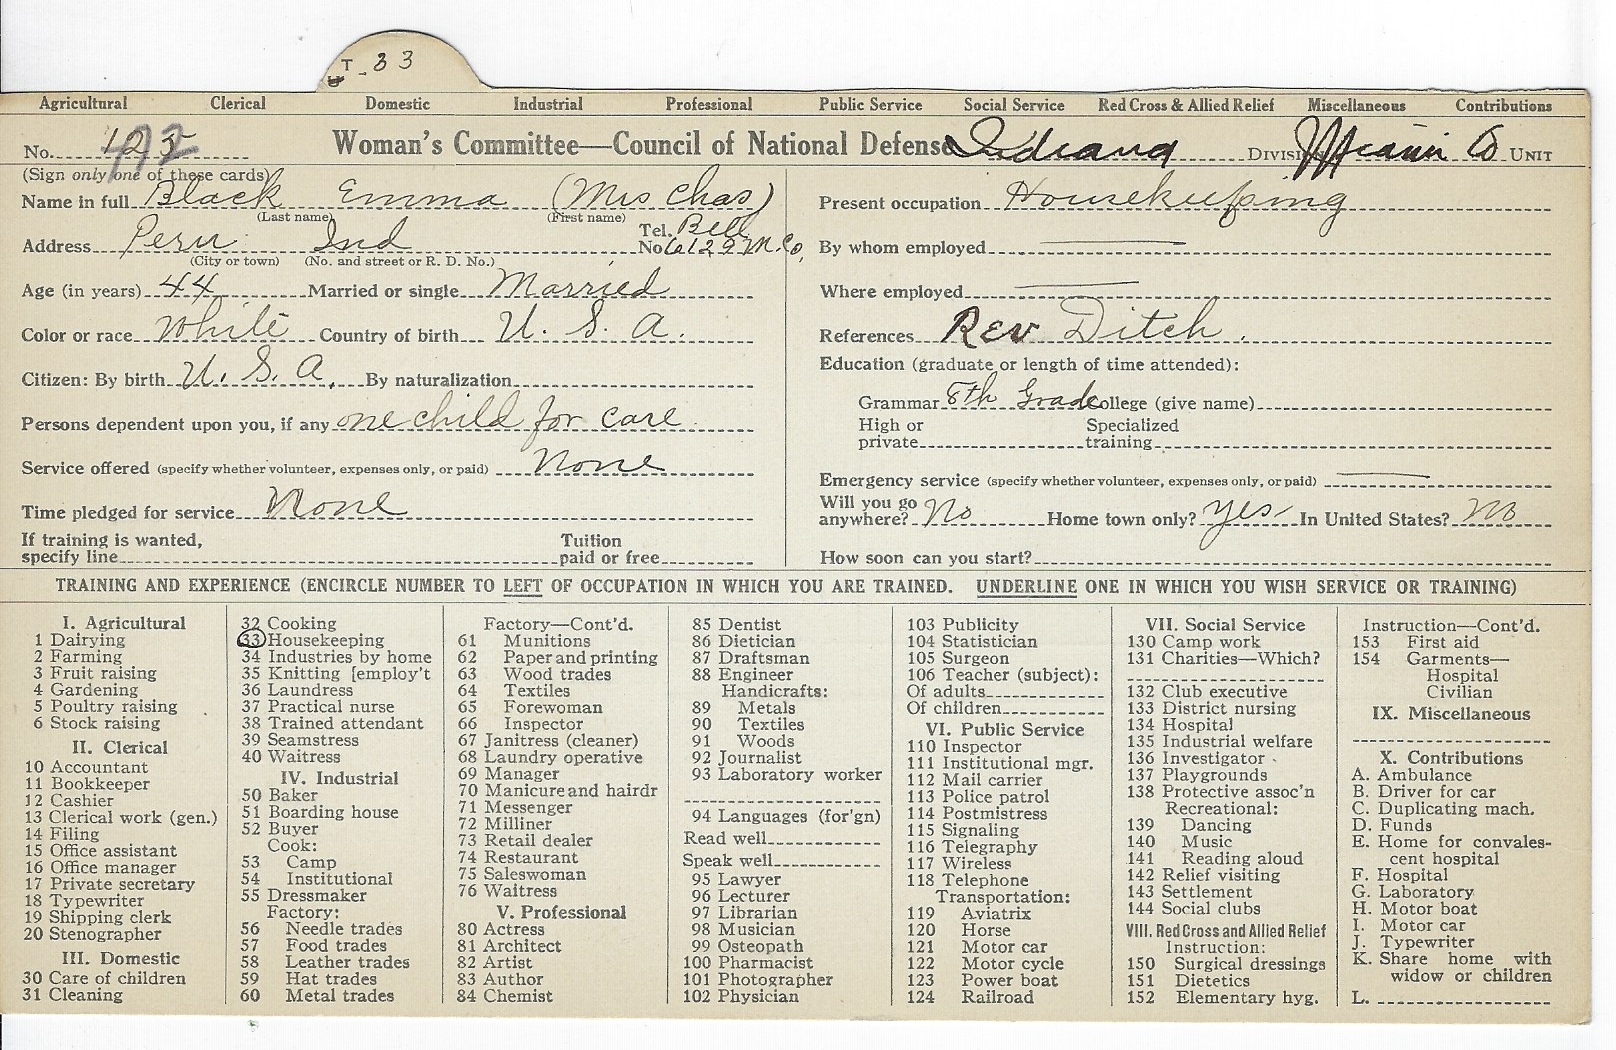 T - 33
Agricultural Clerical Domestic Industrial Professional Public Service Social Service Red Cross & Allied Relief Miscellaneous Contributions
No. Woman's Committee—Council of National Defense Indiana Division Miami Co Unit
(Sign only one of these cards)
Name in full Black Emma (Mrs Chas)
(Last name) (First name)
Tel. Bell
Address Peru Ind No 6129 M. Co,
(City or town) (No. and street or R. D. No.)
Age (in years) 44 Married or single Married
Color or race White Country of birth U. S. A.
Citizen: By birth U. S. A. By naturalization
Persons dependent upon you, if any one child for care
Service offered (specify whether volunteer, expenses only, or paid) None
Time pledged for service None
If training is wanted, Tuition
specify line paid or free
Present occupation Housekeeping
By whom employed
Where employed
References Rev Ditch.
Education (graduate or length of time attended):
Grammar 8th Grade College (give name)
High or Specialized
private training
Emergency service (specify whether volunteer, expenses only, or paid)
Will you go
anywhere? No Home town only? Yes In United States? No
How soon can you start?
TRAINING AND EXPERIENCE (ENCIRCLE NUMBER TO LEFT OF OCCUPATION IN WHICH YOU ARE TRAINED. UNDERLINE ONE IN WHICH YOU WISH SERVICE OR TRAINING)
I. Agricultural
1 Dairying
2 Farming
3 Fruit raising
4 Gardening
5 Poultry raising
6 Stock raising
II. Clerical
10 Accountant
11 Bookkeeper
12 Cashier
13 Clerical work (gen.)
14 Filing
15 Office assistant
16 Office manager
17 Private secretary
18 Typewriter
19 Shipping clerk
20 Stenographer
III. Domestic
30 Care of children
31 Cleaning
32 Cooking
33 Housekeeping
34 Industries by home
35 Knitting [employ't
36 Laundress
37 Practical nurse
38 Trained attendant
39 Seamstress
40 Waitress
IV. Industrial
50 Baker
51 Boarding house
52 Buyer
Cook:
53 Camp
54 Institutional
55 Dressmaker
Factory:
56 Needle trades
57 Food trades
58 Leather trades
59 Hat trades
60 Metal trades
Factory—Cont'd.
61 Munitions
62 Paper and printing
63 Wood trades
64 Textiles
65 Forewoman
66 Inspector
67 Janitress (cleaner)
68 Laundry operative
69 Manager
70 Manicure and hairdr
71 Messenger
72 Milliner
73 Retail dealer
74 Restaurant
75 Saleswoman
76 Waitress
V. Professional
80 Actress
81 Architect
82 Artist
83 Author
84 Chemist
85 Dentist
86 Dietician
87 Draftsman
88 Engineer
Handicrafts:
89 Metals
90 Textiles
91 Woods
92 Journalist
93 Laboratory worker
94 Languages (for'gn)
Read well
Speak well
95 Lawyer
96 Lecturer
97 Librarian
98 Musician
99 Osteopath
100 Pharmacist
101 Photographer
102 Physician
103 Publicity
104 Statistician
105 Surgeon
106 Teacher (subject):
Of adults
Of children
VI. Public Service
110 Inspector
111 Institutional mgr.
112 Mail carrier
113 Police patrol
114 Postmistress
115 Signaling
116 Telegraphy
117 Wireless
118 Telephone
Transportation:
119 Aviatrix
120 Horse
121 Motor car
122 Motor cycle
123 Power boat
124 Railroad
VII. Social Service
130 Camp work
131 Charities—Which?
132 Club executive
133 District nursing
134 Hospital
135 Industrial welfare
136 Investigator
137 Playgrounds
138 Protective assoc'n
Recreational:
139 Dancing
140 Music
141 Reading aloud
142 Relief visiting
143 Settlement
144 Social clubs
VIII. Red Cross and Allied Relief
Instruction:
150 Surgical dressings
151 Dietetics
152 Elementary hyg.
Instruction—Cont'd.
153 First aid
154 Garments—
Hospital
Civilian
IX. Miscellaneous
X. Contributions
A. Ambulance
B. Driver for car
C. Duplicating mach.
D. Funds
E. Home for convales-
cent hospital
F. Hospital
G. Laboratory
H. Motor boat
I. Motor car
J. Typewriter
K. Share home with
widow or children
L.